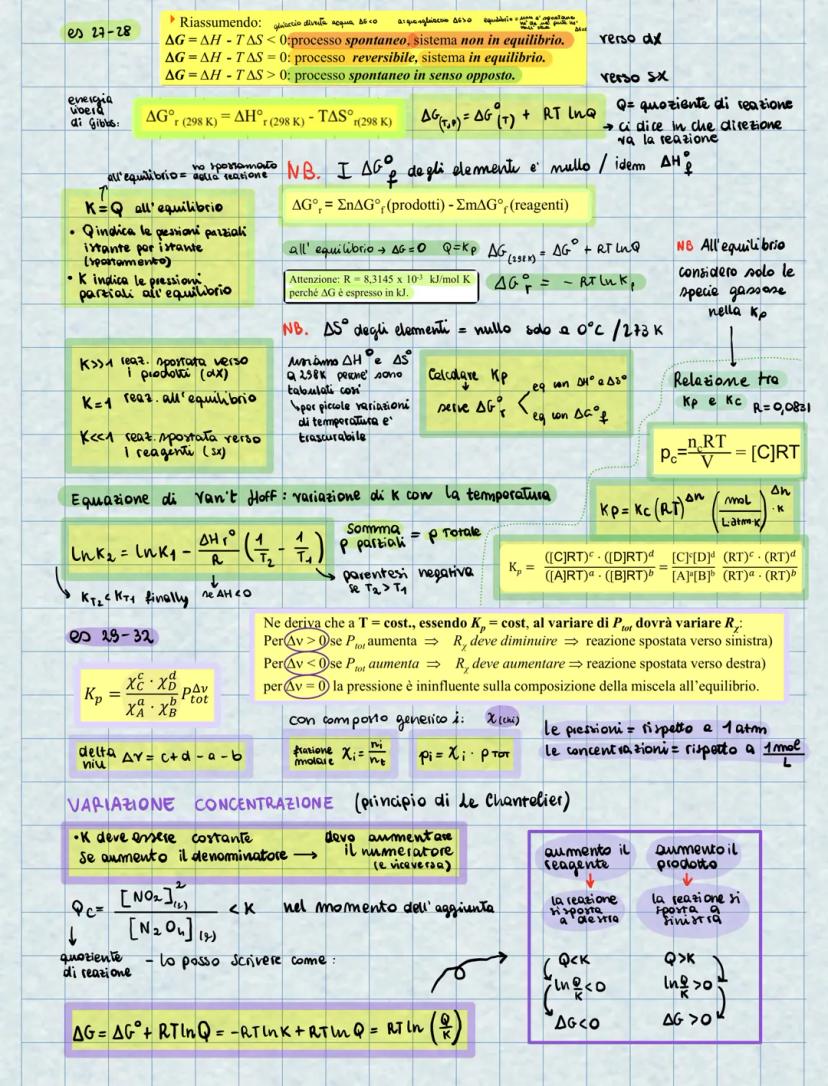 es 27-28
Riassumendo:
ΔG = ΔH - T ΔS < 0: processo spontaneo, sistema non in equilibrio.
verso dx
ΔG = ΔH - T ΔS = 0: processo reversibile, sistema in equilibrio.
ΔG = ΔH - T ΔS > 0: processo spontaneo in senso opposto.
verso sx
energia
libera
di Gibbs:
ΔG°r (298 K) = ΔH°r (298 K) - TΔS°r(298 K)
ΔG(T,P) = ΔG°(T) + RT lnQ
Q = quoziente di reazione
→ ci dice in che direzione
va la reazione
all'equilibrio = no spostamento
della reazione
NB. I ΔG°f degli elementi e' nullo / idem ΔH°f
K = Q all'equilibrio
• Q indica le pressioni parziali
istante per istante
(spostamento)
• K indica le pressioni
parziali all'equilibrio
ΔG°r = ΣnΔG°f (prodotti) - ΣmΔG°f (reagenti)
all'equilibrio → ΔG=0 Q=Kp ΔG(298K) = ΔG° + RT lnQ
Attenzione: R = 8,3145 x 10⁻³ kJ/mol K
perché ΔG è espresso in kJ.
ΔG°r = - RT ln Kp
NB All'equilibrio
considero solo le
specie gassose
nella Kp
NB. ΔS° degli elementi = nullo solo a 0°C / 273 K
K>>1 reaz. spostata verso
i prodotti (dx)
K=1 reaz. all'equilibrio
K<<1 reaz. spostata verso
i reagenti (sx)
usiamo ΔH° e ΔS°
a 298K perche' sono
tabulati così
↳ per piccole variazioni
di temperatura e'
trascurabile
Calcolare Kp
↓
serve ΔG°r
eq con ΔH° e ΔS°
eq con ΔG°f
Relazione tra
Kp e Kc
R = 0,0821
pc = ncRT / V = [C]RT
Equazione di Van't Hoff : variazione di K con la temperatura
Kp = Kc (RT)^Δn (mol / L·atm·K · K)^Δn
lnK2 = lnK1 - ΔHr° / R (1/T2 - 1/T1)
somma
p parziali = p totale
↳ KT2 < KT1 finally
se ΔH<0
parentesi negativa
se T2 > T1
Kp = ([C]RT)^c · ([D]RT)^d / ([A]RT)^a · ([B]RT)^b = [C]^c[D]^d / [A]^a[B]^b (RT)^c · (RT)^d / (RT)^a · (RT)^b
es 29-32
Ne deriva che a T = cost., essendo Kp = cost, al variare di Ptot dovrà variare Rχ:
Per Δν > 0 se Ptot aumenta ⇒ Rχ deve diminuire ⇒ reazione spostata verso sinistra)
Per Δν < 0 se Ptot aumenta ⇒ Rχ deve aumentare ⇒ reazione spostata verso destra)
per Δν = 0 la pressione è ininfluente sulla composizione della miscela all'equilibrio.
Kp = χC^c · χD^d / χA^a · χB^b Ptot^Δν
con composto generico i: χ (chi)
delta
niu Δν = c+d-a-b
frazione
molare χi = ni / nt
pi = χi · pTOT
le pressioni = rispetto a 1 atm
le concentrazioni = rispetto a 1 mol / L
VARIAZIONE CONCENTRAZIONE (principio di Le Chantelier)
• K deve essere costante
Se aumento il denominatore → devo aumentare
il numeratore
(e viceversa)
Qc = [NO2]²(g) / [N2O4](g) < K nel momento dell'aggiunta
↓
quoziente
di reazione
- lo posso scrivere come:
ΔG = ΔG° + RT lnQ = -RT lnK + RT lnQ = RT ln (Q/K)
aumento il
reagente
↓
la reazione
si sposta
a destra
Q<K
ln Q/K < 0
ΔG<0
aumento il
prodotto
↓
la reazione si
sposta a
sinistra
Q>K
ln Q/K > 0
ΔG >0